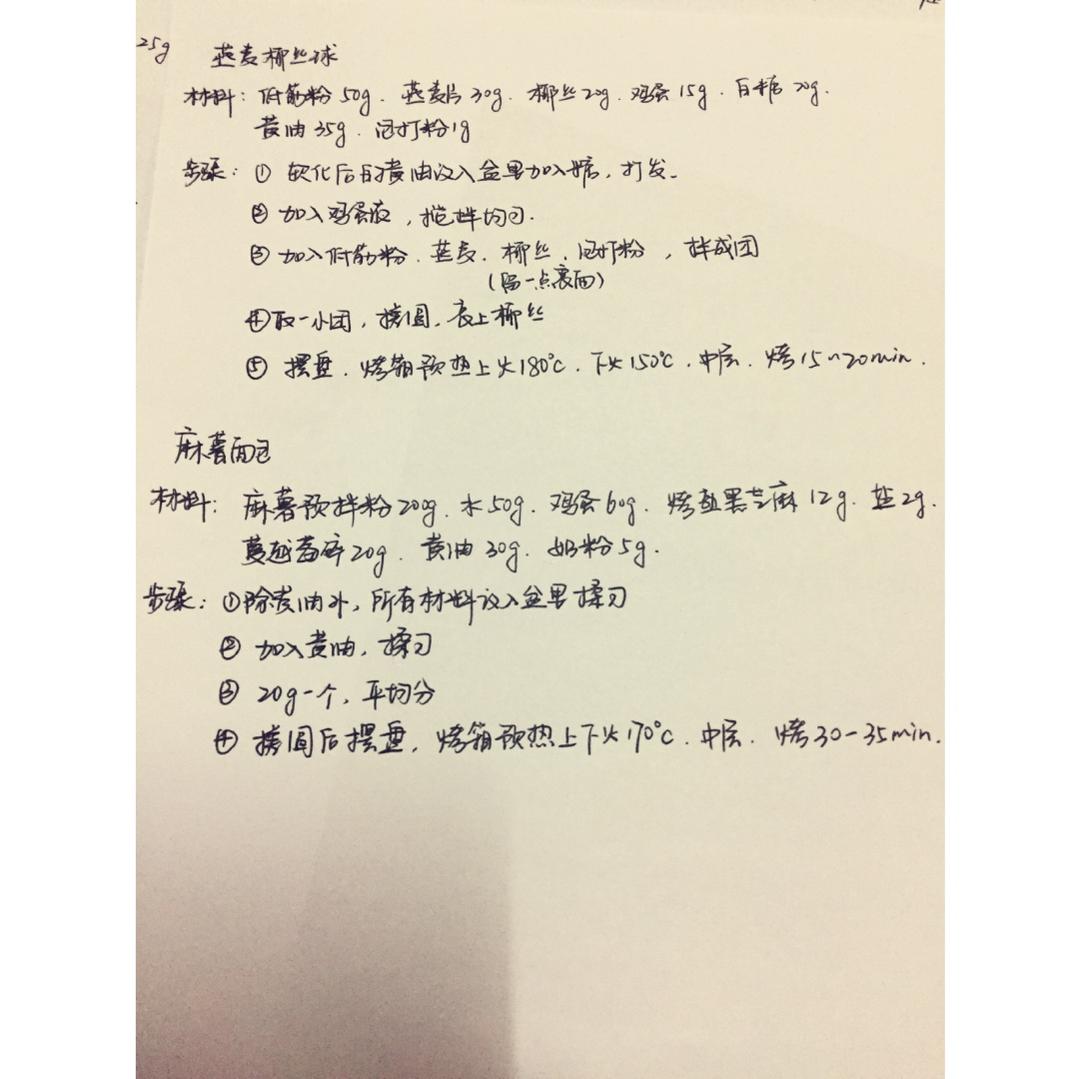 25g 燕麦椰丝球
材料：低筋粉50g、燕麦片30g、椰丝20g、鸡蛋15g、白糖20g、
黄油35g、泡打粉1g
步骤：① 软化后的黄油放入盆里加入糖，打发。
② 加入鸡蛋液，搅拌均匀.
③ 加入低筋粉、燕麦、椰丝、泡打粉，拌成团
(留一点裹面)
④取一小团，搓圆，裹上椰丝
⑤ 摆盘、烤箱预热上火180℃、下火150℃、中层、烤15~20min.
麻薯面包
材料：麻薯预拌粉200g、水50g、鸡蛋60g、烤熟黑芝麻12g、盐2g、
蔓越莓碎20g、黄油30g、奶粉5g.
步骤：①除黄油外，所有材料放入盆里揉匀
② 加入黄油，揉匀
③ 20g一个，平均分
④ 搓圆后摆盘，烤箱预热上下火170℃、中层、烤30-35min.